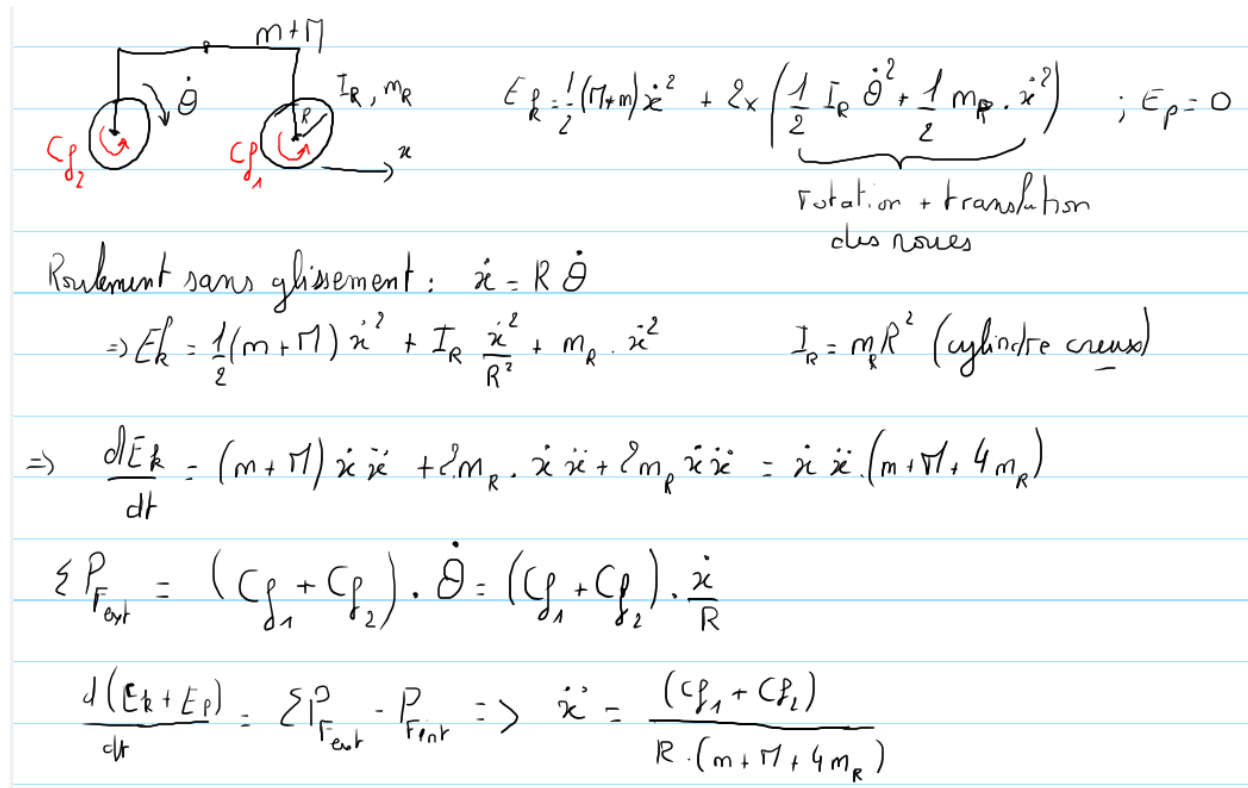 m+M
θ̇
I_R, m_R
R
Cf₂
Cf₁
x
E_k = 1/2 (M+m) ẋ² + 2x (1/2 I_R θ̇² + 1/2 m_R . ẋ²) ; E_p = 0
rotation + translation
des roues
Roulement sans glissement : ẋ = R θ̇
=> E_k = 1/2 (m+M) ẋ² + I_R ẋ²/R² + m_R . ẋ² I_R = m_R R² (cylindre creux)
=> dE_k/dt = (m+M) ẋ ẍ + 2m_R . ẋ ẍ + 2m_R ẋ ẍ = ẋ ẍ . (m+M+4m_R)
Σ P_Fext = (Cf₁ + Cf₂) . θ̇ = (Cf₁ + Cf₂) . ẋ/R
d(E_k + E_p)/dt = ΣP_Fext - P_Fint => ẍ = (Cf₁ + Cf₂)/R.(m+M+4m_R)